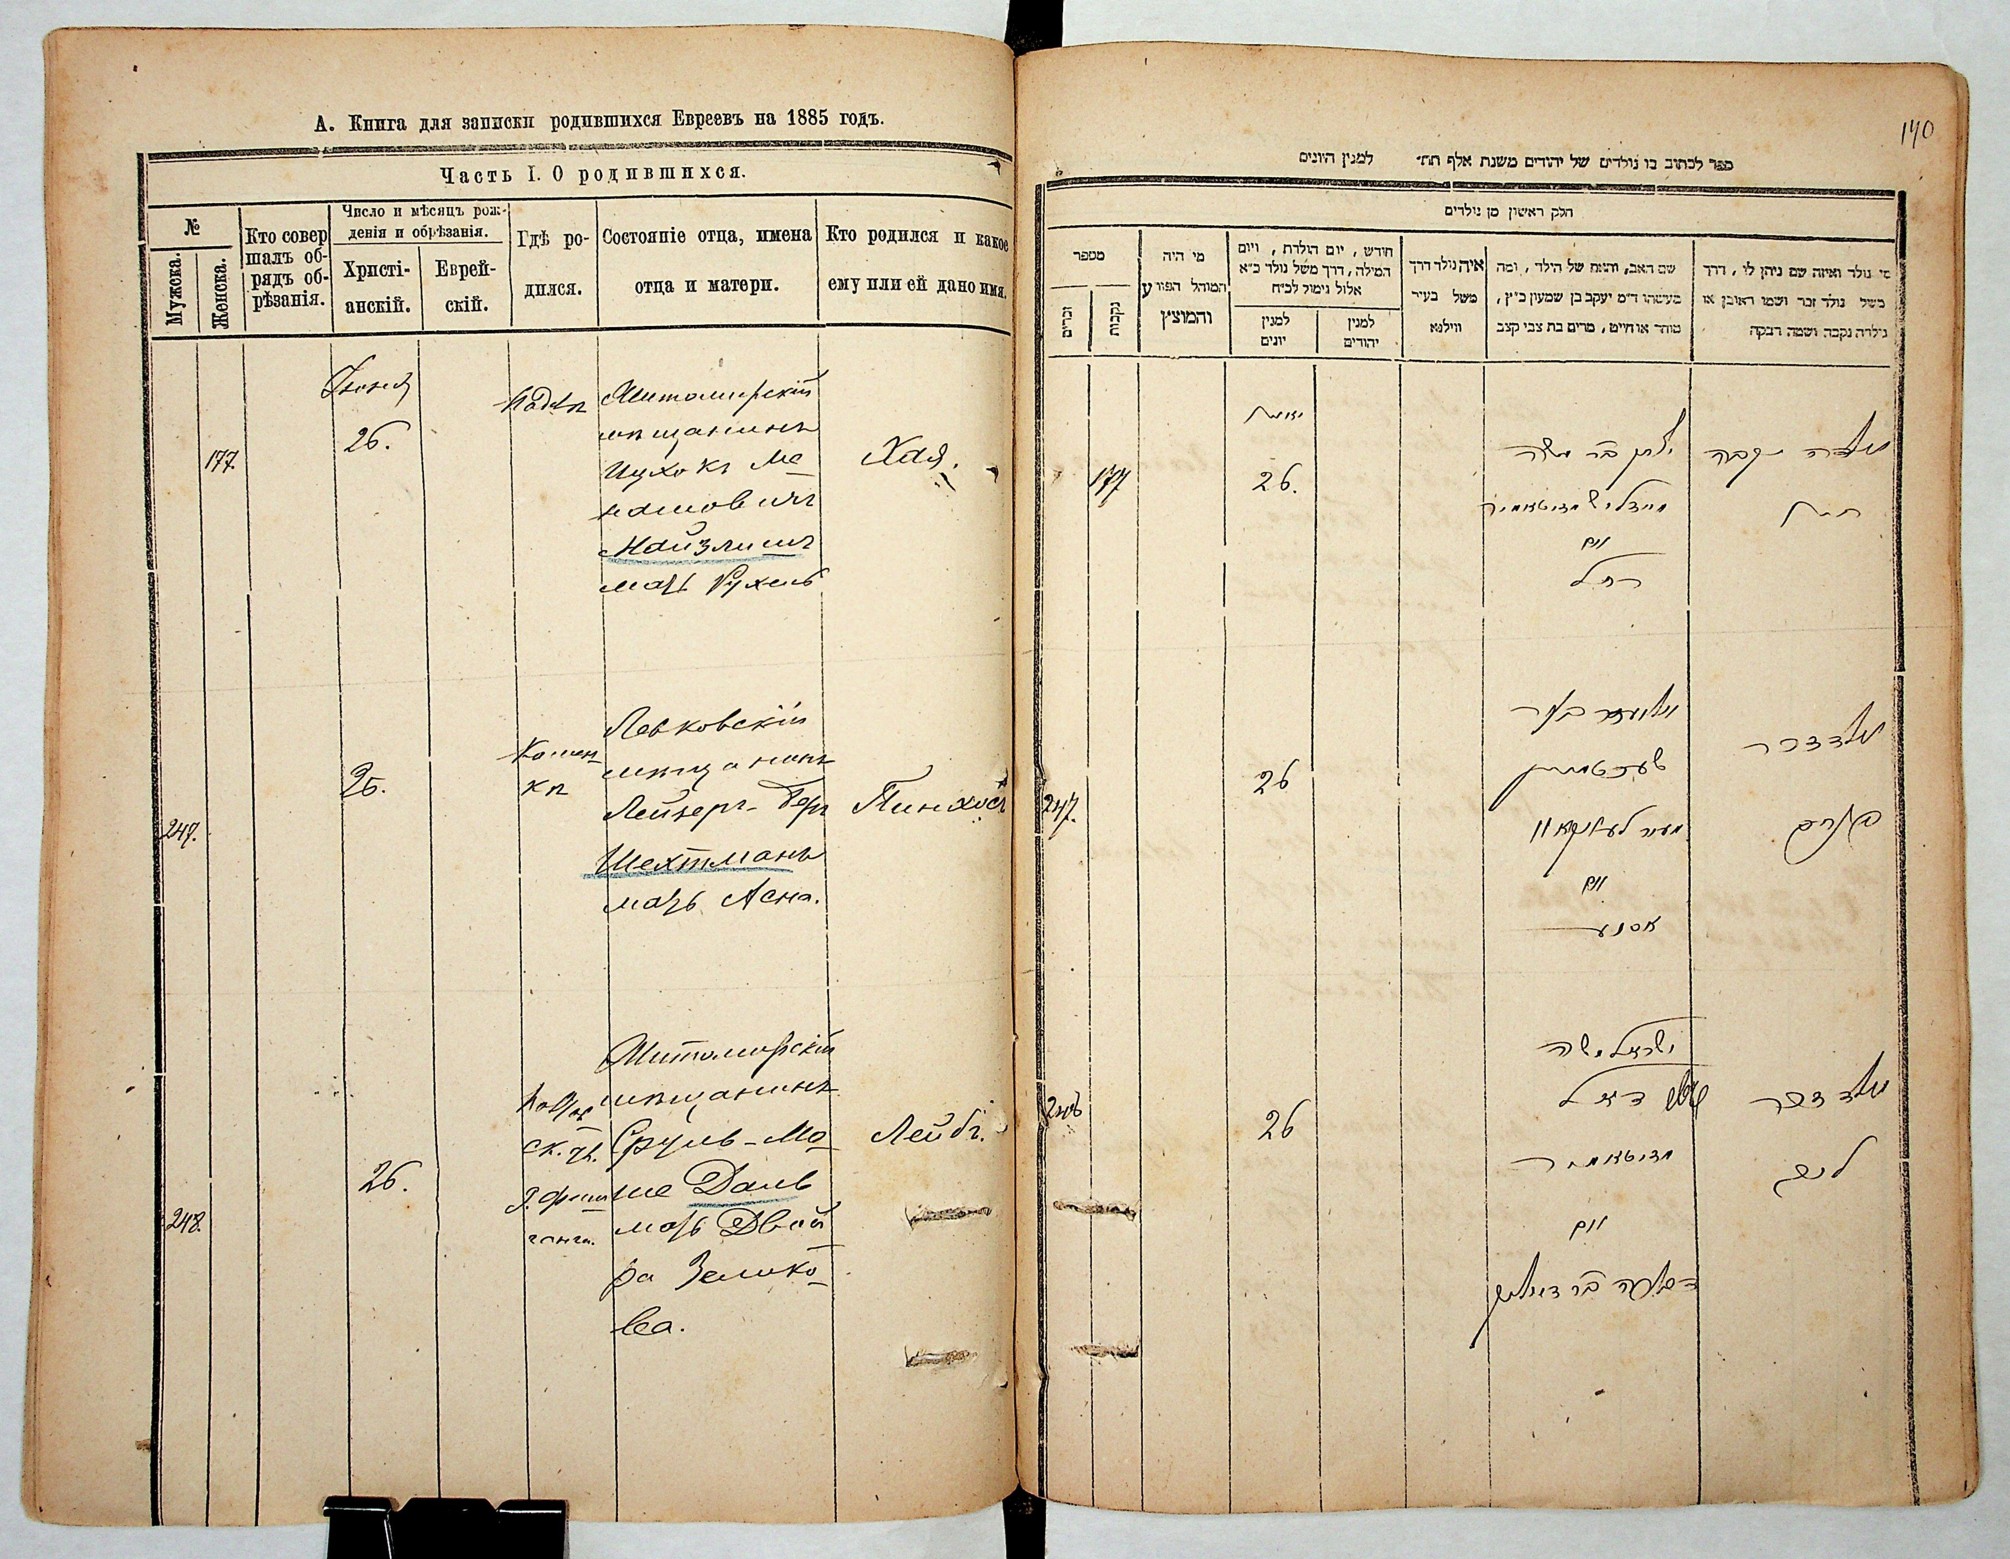 А. Книга для записки родившихся Евреевъ на 1885 годъ.
Часть I. О родившихся.
№
Мужска.
Женска.
Кто совер
шалъ об-
рядъ об-
рѣзанія.
Число и мѣсяцъ рож-
денія и обрѣзанія.
Христі-
анскій.
Еврей-
скій.
Гдѣ ро-
дился.
Состояніе отца, имена
отца и матери.
Кто родился и какое
ему или ей дано имя.
177.
Іюня
26.
Житомирскій
мѣщанинъ
Ицхокъ Ме-
Майзлишъ
мать Рухель
Хая.
247.
26.
Левковскій
мѣщанинъ
Лейзеръ-Беръ
Шехтманъ
мать Асна.
Пинхосъ
248.
26.
Житомирскій
мѣщанинъ
Сруль-Мо-
ше Даль
мать Двой-
ра Зелико-
ва.
Лейбъ.
140
ספר לכתוב בו נולדים של יהודים משנת אלף תת״ למנין היונים
חלק ראשון מן נולדים
מספר
זכרים
נקבות
מי היה
המוהל הפורע
והמוצץ
חודש, יום הולדת, ויום
המילה, דרך משל נולד כ״א
אלול נימול לכ״ח
למנין
יונים
למנין
יהודים
איה נולד דרך
משל בעיר
ווילנא
שם האב, והאם של הילד, ומה
מעשהו ד״מ יעקב בן שמעון כ״ץ,
סוחר או חייט, מרים בת צבי קצב
מי נולד ואיזה שם ניתן לו, דרך
משל נולד זכר ושמו ראובן או
נולדה נקבה ושמה רבקה
177
26.
נולדה נקבה
חיה
רחל
247.
26
נולד זכר
פנחס
אסנע
248
26
ישראל משה
נולד זכר
ליב